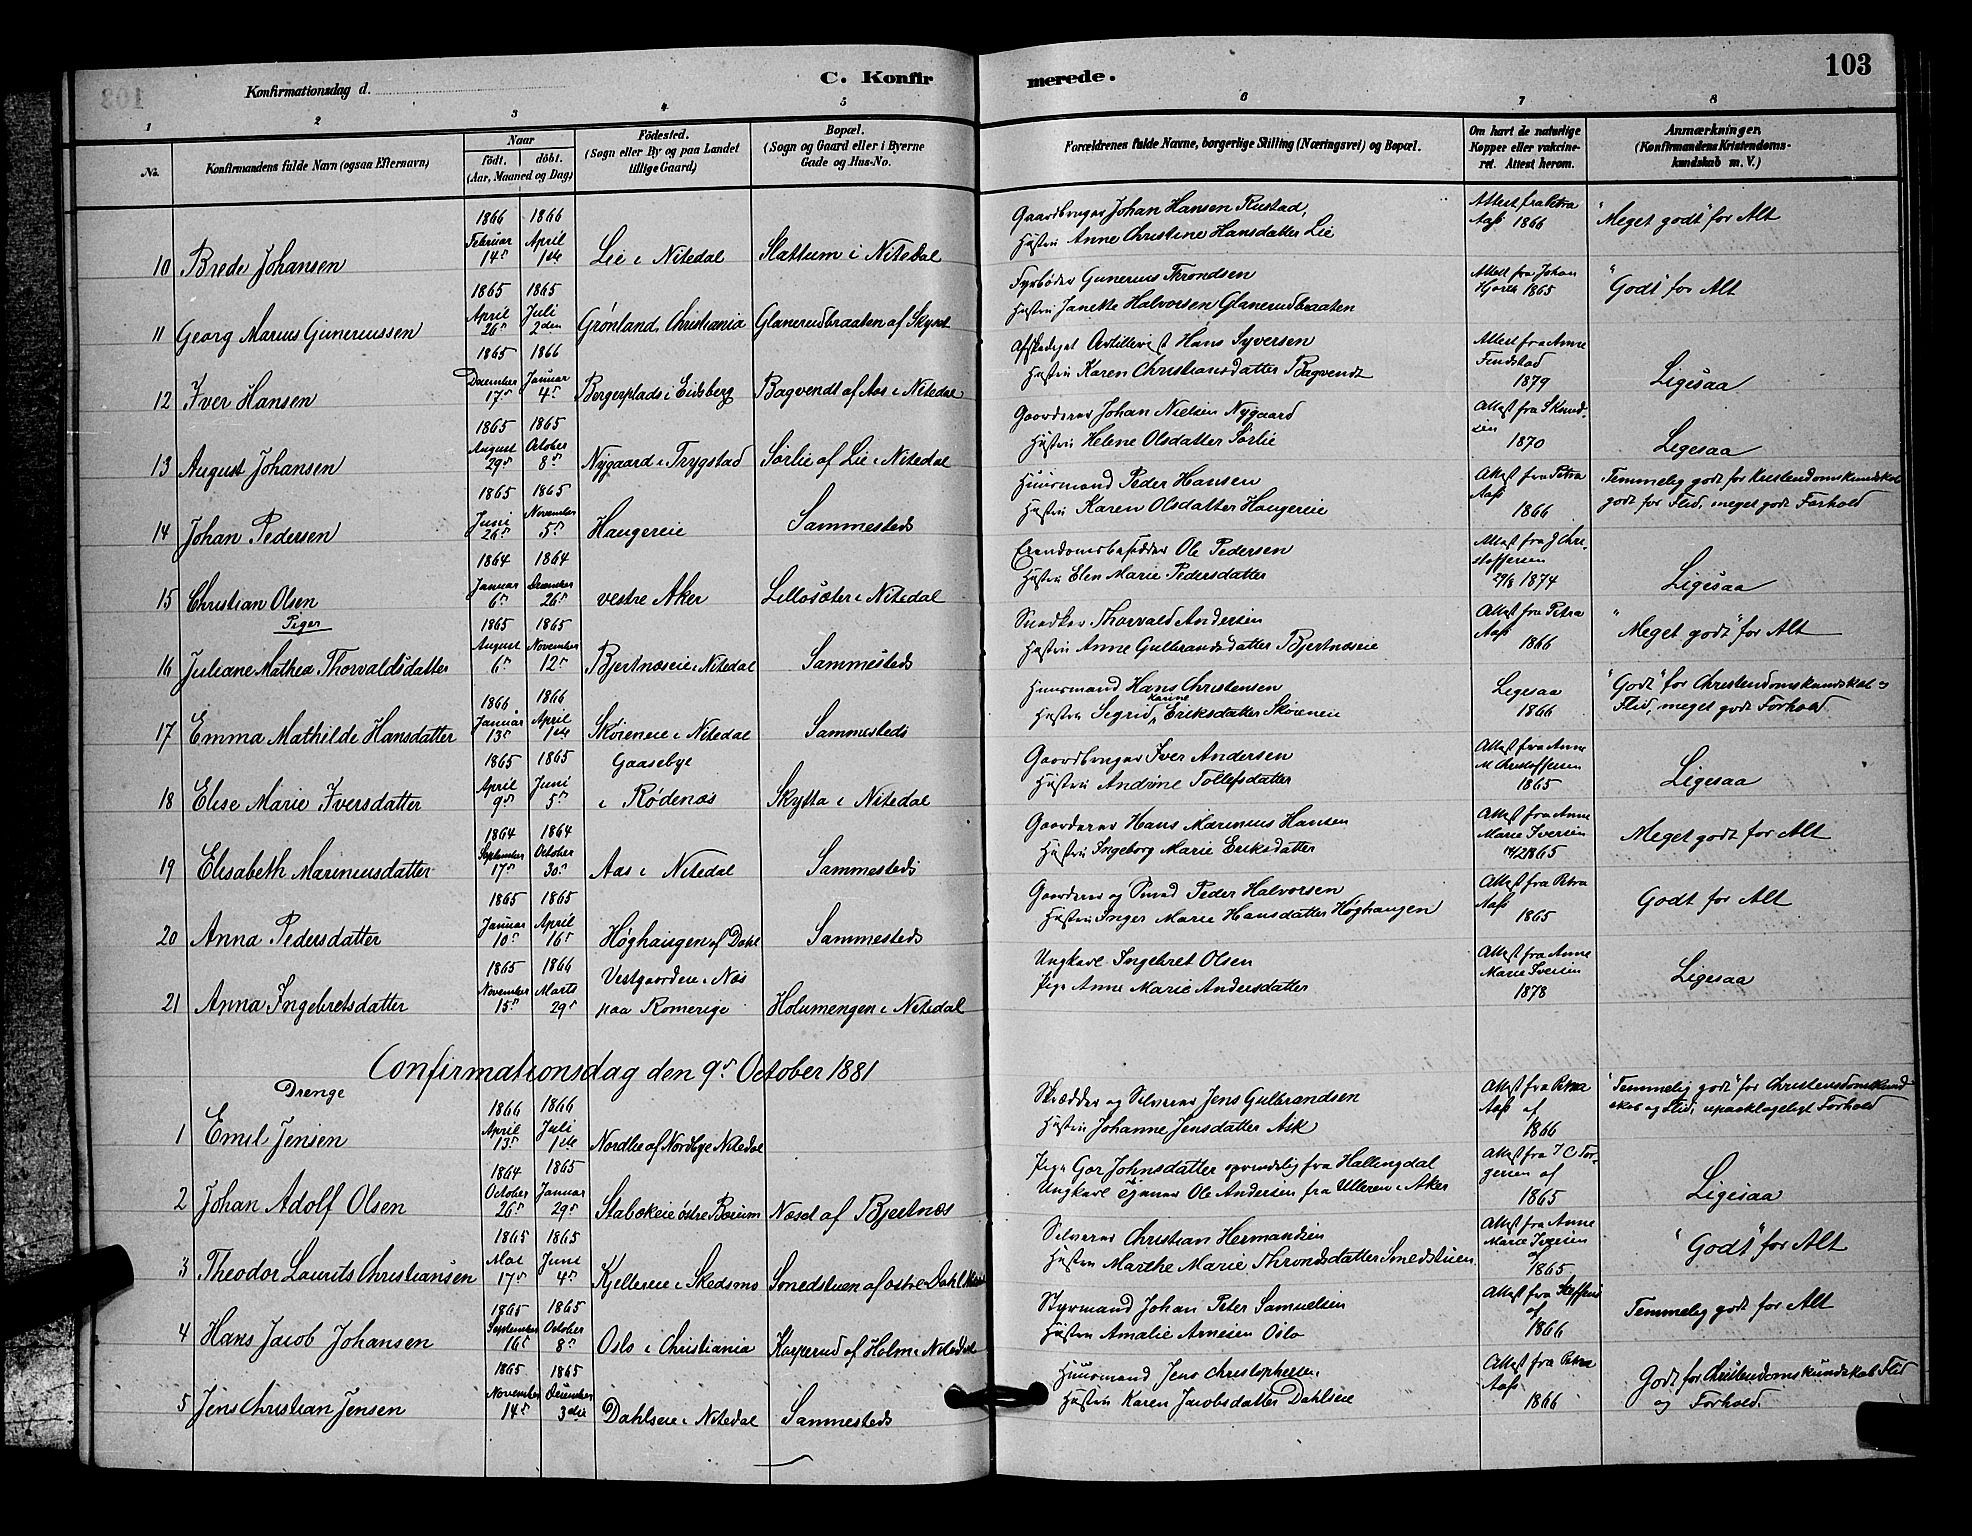 C. Konfirmerede.
103
Konfirmationsdag d.
1 2 3 4 5 6 7 8
No.
Konfirmandens fulde Navn (ogsaa Efternavn)
Naar
Födt. döbt.
(Aar, Maaned og Dag)
Födested.
(Sogn eller By og paa Landet
tillige Gaard)
Bopæl.
(Sogn og Gaard eller i Byerne
Gade og Hus-No.
Forældrenes fulde Navne, borgerlige Stilling (Næringsvei) og Bopæl.
Om havt de naturlige
Kopper eller vakcine-
ret. Attest herom.
Anmærkninger.
(Konfirmandens Kristendoms-
kundskab m. V.)
10 Brede Johansen
1866 Februar 14de
1866 April 1ste
Lie i Nitedal
Slattum i Nitedal
Gaardbruger Johan Hansen Rustad,
Hustru Anne Christine Hansdatter Lie
Attest fra Petra
Aass 1866
"Meget godt" for Alt
11 Georg Marius Guneriussen
1865 April 26de
1865 Juli 2den
Grønland, Christiania
Glanerudbraaten af Skyset
Fyrbøder Gunerius Throndsen
Hustru Janette Halvorsen Glanerudbraaten
Attest fra Johan
1865
"Godt" for Alt
12 Iver Hansen
1865 December 17de
1866 Januar 4de
Bergerplads i Eidsberg
Bagvendt af Aas i Nitedal
Afskediget Artillerist Hans Syversen
Hustru Karen Christiansdatter Bagvendt
Attest fra Anne
Findstad
1879
Ligesaa
13 August Johansen
1865 August 29de
1865 October 8de
Nygaard i Trygstad
Sørlie af Lie i Nitedal
Gaardener Johan Nielsen Nygaard
Hustru Helene Olsdatter Sørlie
Attest fra
1870
Ligesaa
14 Johan Pedersen
1865 Juni 26de
1865 November 5te
Haugereie
Sammesteds
Huusmand Peder Hansen
Hustru Karen Olsdatter Haugereie
Attest fra Petra
Aass
1866
Temmelig godt for Kristendomskundskab
godt for Flid, meget godt Forhold
15 Christian Olsen
1864 Januar 6te
1864 December 26de
vestre Aker
Lillosæter i Nitedal
Eiendomsbesidder Ole Pedersen
Hustru Elen Marie Pedersdatter
Attest fra J Chri-
stoffersen
1874
Ligesaa
Piger
16 Juliane Mathea Thorvaldsdatter
1865 August 6te
1865 November 12te
Bjertnæseie i Nitedal
Sammesteds
Snedker Thorvald Andersen
Hustru Anne Gulbrandsdatter Bjertnæseie
Attest fra Petra
Aass
1866
"Meget godt" for Alt
17 Emma Mathilde Hansdatter
1866 Januar 13de
1866 April 1ste
Skøieneie i Nitedal
Sammesteds
Huusmand Hans Christensen
Hustru Segrid Karine Eriksdatter Skøieneie
Ligesaa
1866
"Godt" for Christendomskundskab og
Flid, meget godt Forhold
18 Elise Marie Iversdatter
1865 April 9de
1865 Juni 5te
Gaasebye
i Rødenæs
Skytta i Nitedal
Gaardbruger Iver Andersen
Hustru Andrine Tollefsdatter
Attest fra Anne
M Christoffersen
1865
Ligesaa
19 Elisabeth Mariniusdatter
1864 September 17de
1864 October 30de
Aas i Nitedal
Sammesteds
Gaardener Hans Marinius Hansen
Hustru Ingeborg Marie Eriksdatter
Attest fra Anne
Marie Iversen
1865
Meget godt for Alt
20 Anna Pedersdatter
1865 Januar 10de
1865 April 16de
Høghaugen af Dahl
Sammesteds
Gaardener og Smed Peder Halvorsen
Hustru Inger Marie Hansdatter Høghaugen
Attest fra Petra
Aass
1865
Godt for Alt
21 Anna Ingebretsdatter
1865 November 15de
1866 Marts 29de
Vestgaardeie i Næs
paa Romerige
Holumengen i Nitedal
Ungkarl Ingebret Olsen
Pige Anne Marie Andersdatter
Attest fra Anne
Marie Iversen
1878
Ligesaa
Confirmationsdag den 9de October 1881
Drenge
1 Emil Jensen
1866 April 13de
1866 Juli 1ste
Nordlie af Nordbye Nitedal
Skrædder og Selveier Jens Gulbrandsen
Hustru Johanne Jensdatter Ask
Attest fra Petra
Aass af
1866
"Temmelig godt" for Christendomskund
skab og Flid, upaaklageligt Forhold
2 Johan Adolf Olsen
1864 October 26de
1865 Januar 29de
Stabækeie østre Bærum
Næset af Bjertnæs
Pige Gor Johnsdatter oprindelig fra Hallingdal
Ungkarl Tjener Ole Andersen fra Ulleren i Aker
Attest fra I C Tor-
gersen af
1865
Ligesaa
3 Theodor Laurits Christiansen
1865 Mai 17de
1865 Juni 4de
Kjellereie i Skedsmo
Smedstuen af østre Dahl
Selveier Christian Hermandsen
Hustru Marthe Marie Throndsdatter Smedstuen
Attest fra Anne
Marie Iversen
af
1865
"Godt" for Alt
4 Hans Jacob Johansen
1865 September 16de
1865 October 8de
Oslo i Christiania
Kasperud af Holm i Nitedal
Styrmand Johan Peter Samuelsen
Hustru Amalie Arnesen Oslo
Attest fra Steffens
af
1866
Temmelig godt for Alt
5 Jens Christian Jensen
1865 November 14de
1865 December 3die
Dahlseie i Nitedal
Sammesteds
Huusmand Jens Christophersen
Hustru Karen Jacobsdatter Dahlseie
Attest fra Petra
Aass
1866
Godt for Christendomskundskab Flid
og Forhold.